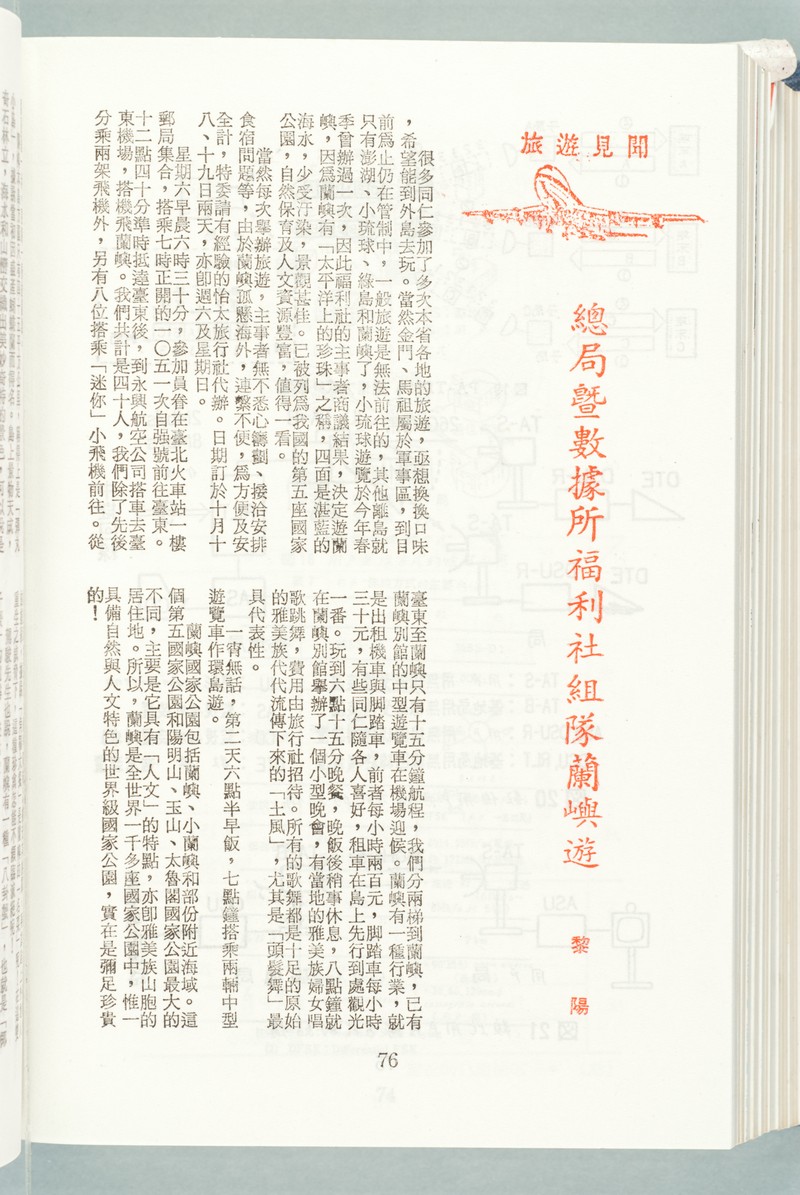 旅遊見聞
總局暨數據所福利社組隊蘭嶼遊
黎陽
很多同仁參加了多次本省各地的旅遊，亟想換換口味
，希望能到外島去玩。當然金門、馬祖屬於軍事區，到目
前爲止仍在管制中，一般旅遊是無法前往的，其他離島就
只有澎湖、小琉球、綠島和蘭嶼了，小琉球遊覽於今年春
季曾辦過一次，因此福利社的主事者商議結果，決定遊蘭
嶼，因爲蘭嶼有「太平洋上的珍珠」之稱，四面是湛藍的
海水，少受汙染，景觀甚佳。已被列爲我國的第五座國家
公園，自然保育及人文資源豐富，值得一看。
當然每次舉辦旅遊，主事者無不悉心籌劃、接洽安排
食宿問題等，由於蘭嶼孤懸海外，連繫不便，爲方便及安
全計，特委請有經驗的怡太旅行社代辦。日期訂於十月十
八、十九日兩天，亦卽週六及星期日。
星期六早晨六時三十分，參加員眷在臺北火車站一樓
郵局集合，搭乘七時正開的一〇五一次自強號前往臺東。
十二點四十分準時抵達臺東後，到永興航空公司搭車去臺
東機場，搭機飛蘭嶼。我們共計是四十人，我們除了先後
分乘兩架飛機外，另有八位搭乘「迷你」小飛機前往。從
臺東至蘭嶼只有十五分鐘航程，我們分兩梯到蘭嶼，已有
蘭嶼別館的中型遊覽車在機場迎候。蘭嶼有一種行業，就
是出租機車與脚踏車，前者每小時兩百元，脚踏車每小時
三十元，有些同仁隨各人喜好，租車在島上先行到處觀光
一番。玩到六點十五分晚餐，晚飯後稍事休息，八點鐘就
在蘭嶼別館舉辦了一個小型晚會，有當地的雅美族婦女唱
歌跳舞，費用由旅行社招待。所有的歌舞都是十足的原始
的雅美族代代流傳下來的「土風」，尤其是「頭髮舞」最
具代表性。
一宵無話，第二天六點半早飯，七點鐘搭乘兩輛中型
遊覽車作環島遊。
蘭嶼國家公園包括蘭嶼、小蘭嶼和部份附近海域。這
個第五國家公園和陽明山、玉山、太魯閣國家公園最大的
不同，主要是它具有「人文」的特點，亦卽雅美族山胞的
居住地。所以，蘭嶼是全世界一千多座國家公園中，惟一
具備自然與人文特色的世界級國家公園，實在是彌足珍貴
的！
76